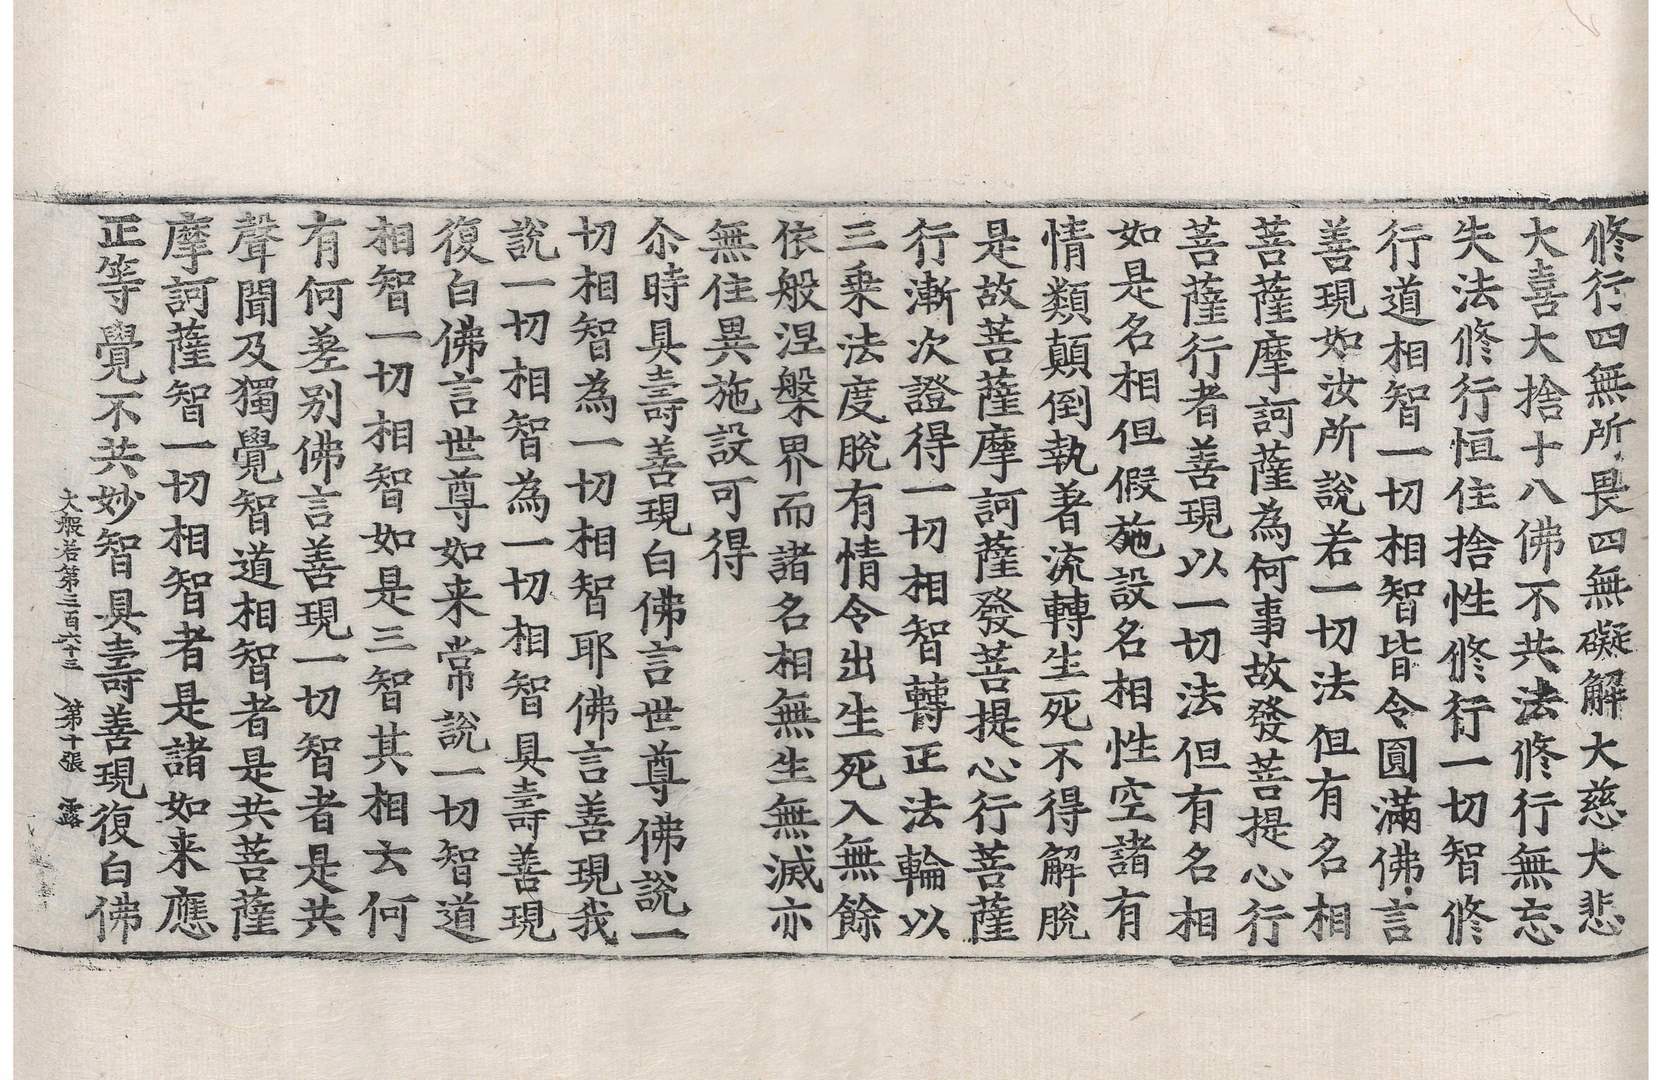 修行四無所畏四無礙解大慈大悲
大喜大捨十八佛不共法修行無忘
失法修行恒住捨性修行一切智修
行道相智一切相智皆令圓滿佛言
善現如汝所說若一切法但有名相
菩薩摩訶薩為何事故發菩提心行
菩薩行者善現以一切法但有名相
如是名相但假施設名相性空諸有
情類顛倒執著流轉生死不得解脫
是故菩薩摩訶薩發菩提心行菩薩
行漸次證得一切相智轉正法輪以
三乘法度脫有情令出生死入無餘
依般涅槃界而諸名相無生無滅亦
無住異施設可得
尒時具壽善現白佛言世尊佛說一
切相智為一切相智耶佛言善現我
說一切相智為一切相智具壽善現
復白佛言世尊如来常說一切智道
相智一切相智如是三智其相云何
有何差別佛言善現一切智者是共
聲聞及獨覺智道相智者是共菩薩
摩訶薩智一切相智者是諸如来應
正等覺不共妙智具壽善現復白佛
大般若第三百六十三 第十張 露